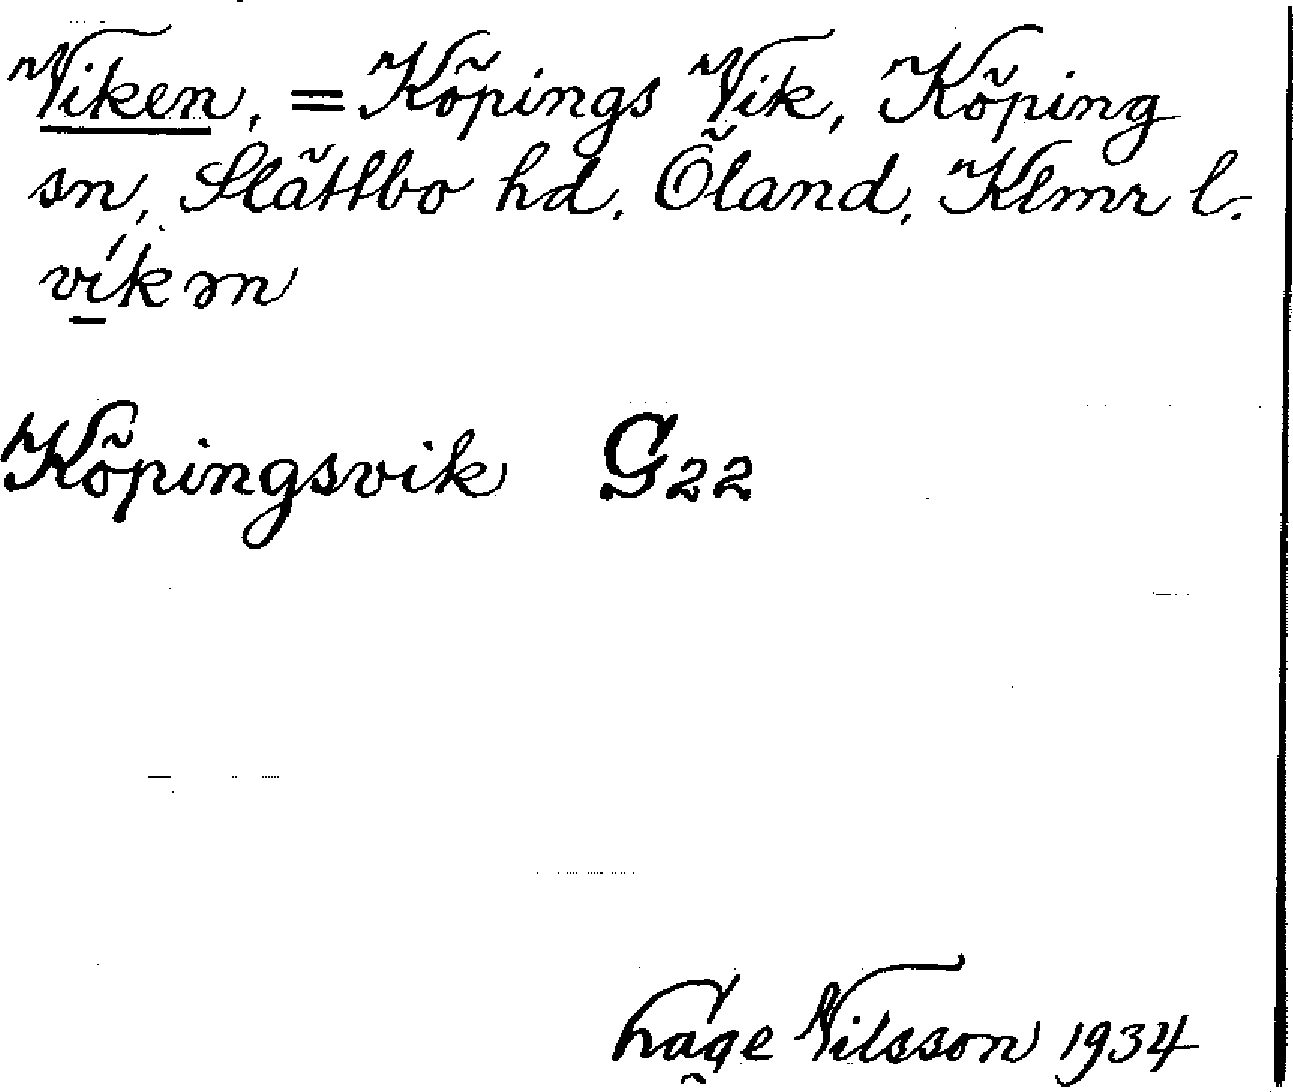 Viken, = Köpings Vik, Köping
sn, Slättbo hd. Öland, Klmr l.
víkən
Köpingsvik G22
Nilsson 1934